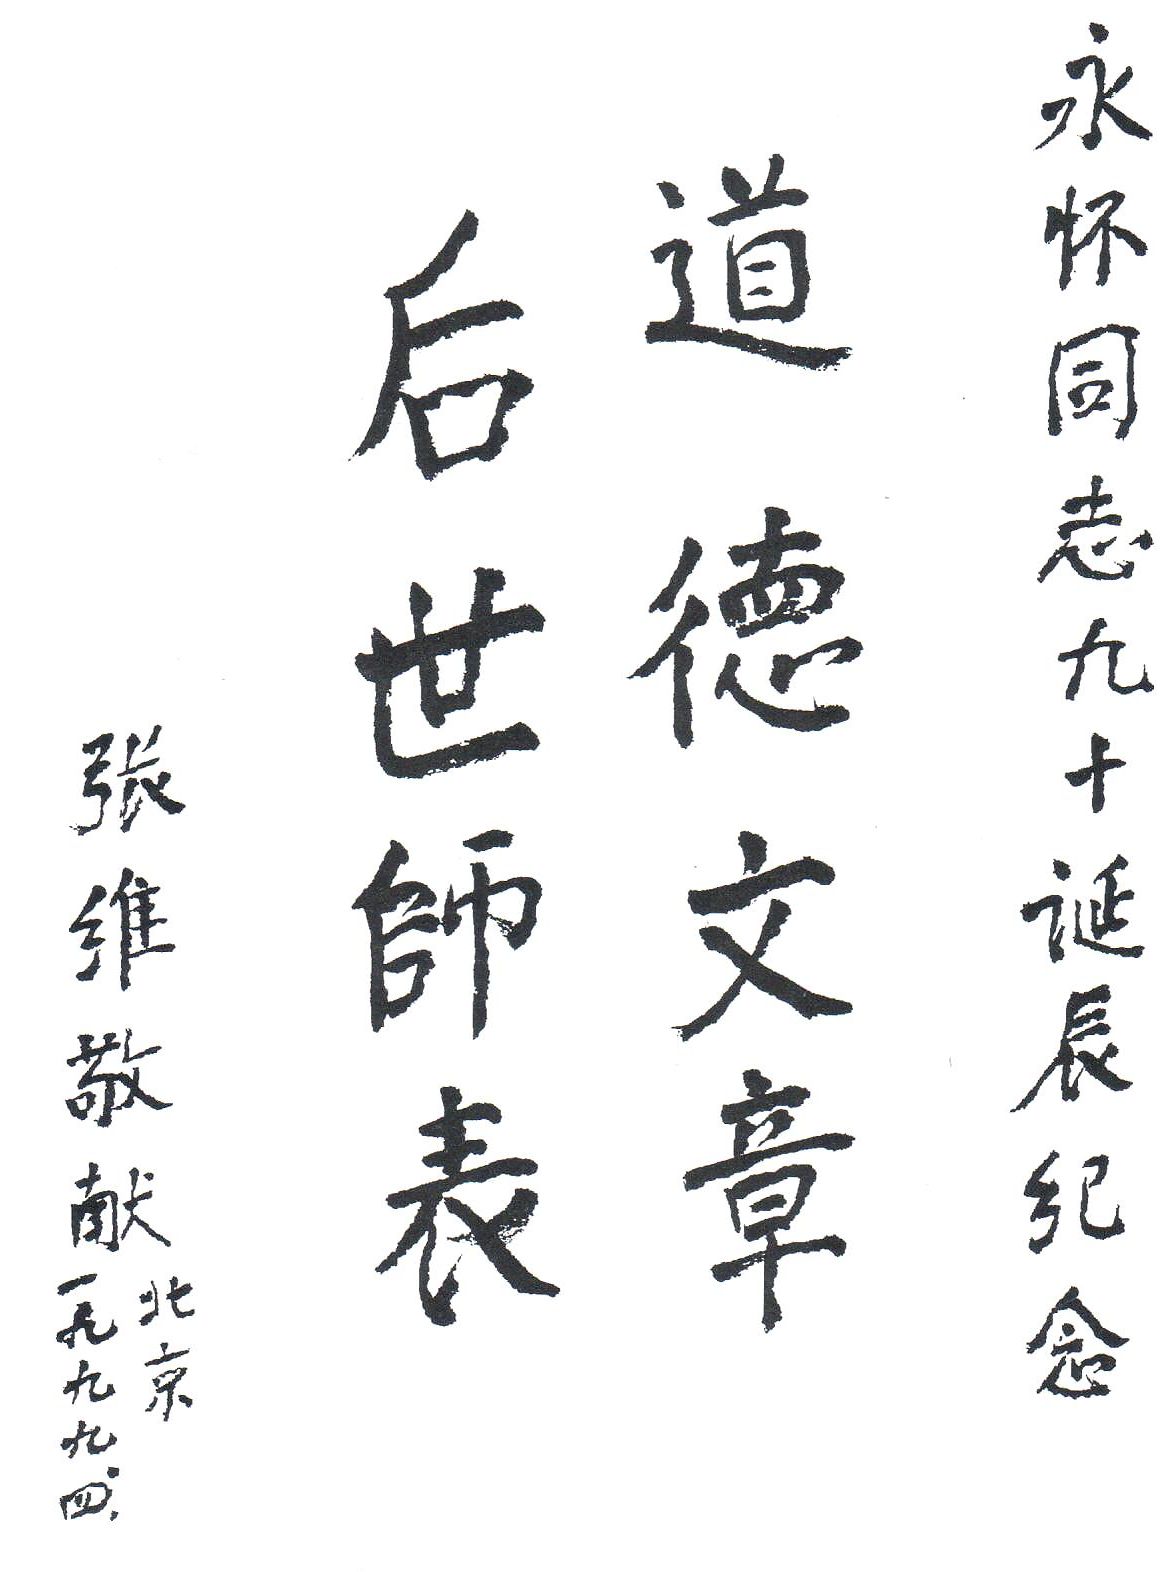 永怀同志九十诞辰纪念
道德文章
后世師表
張維敬献
北京
一九九九.四.